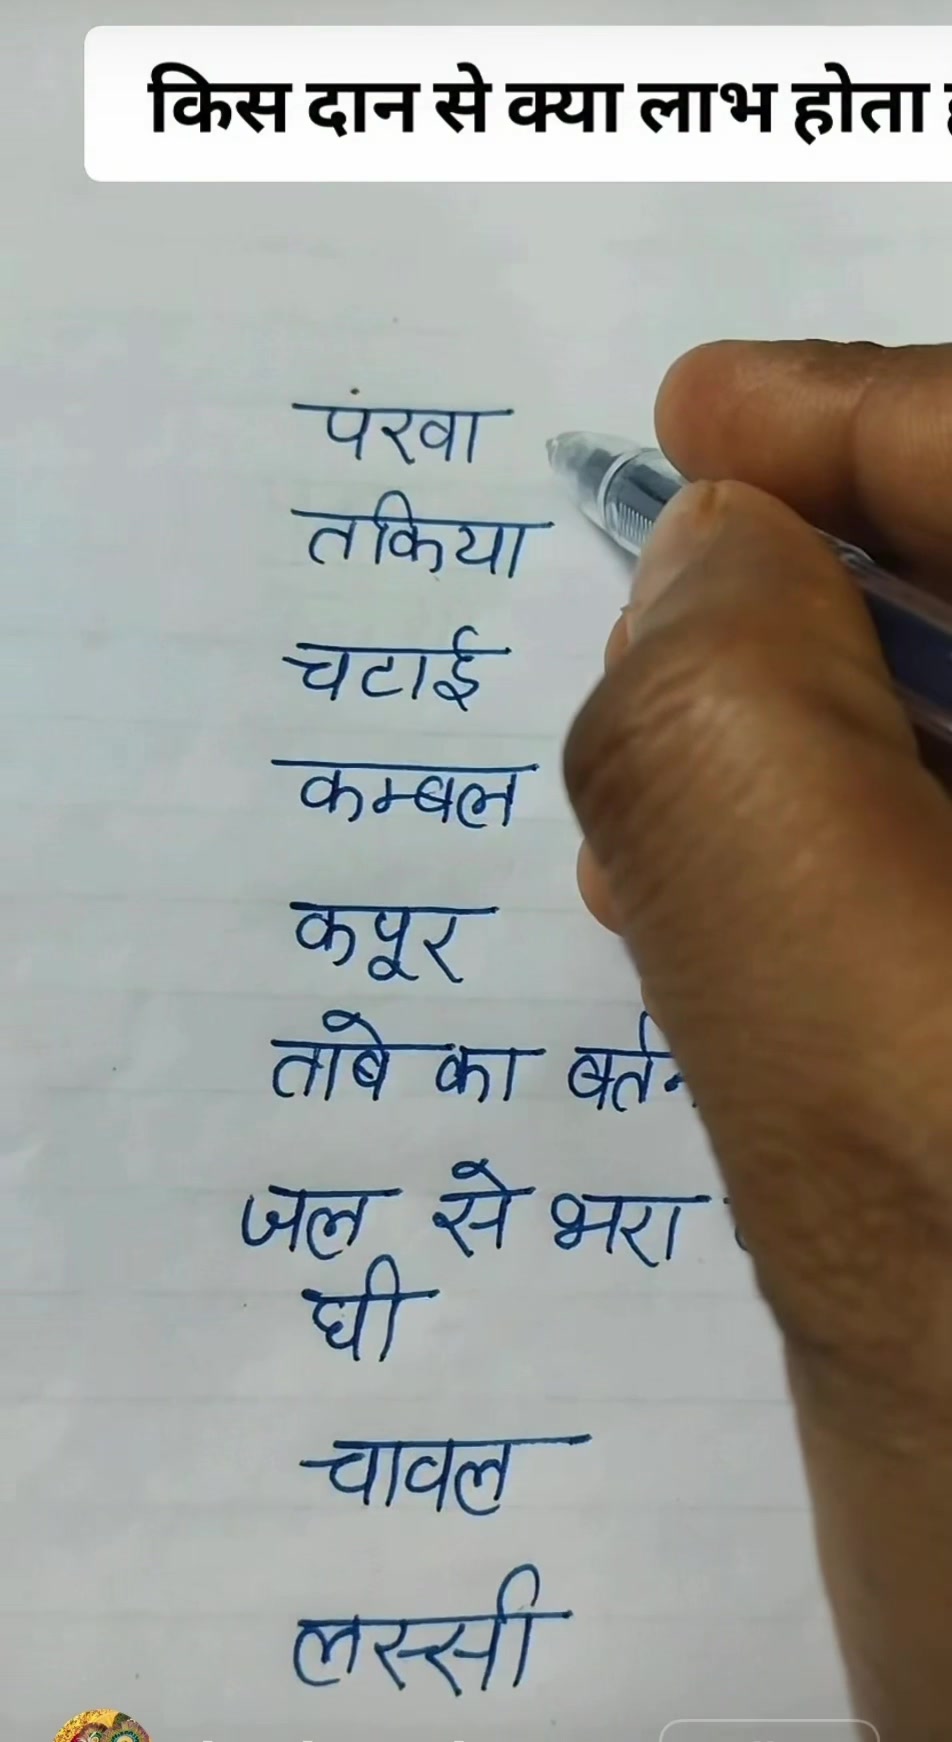 किस दान से क्या लाभ होता
पंखा
तकिया
चटाई
कम्बल
कपूर
ताबे का बर्तन
जल से भरा
घी
चावल
लस्सी